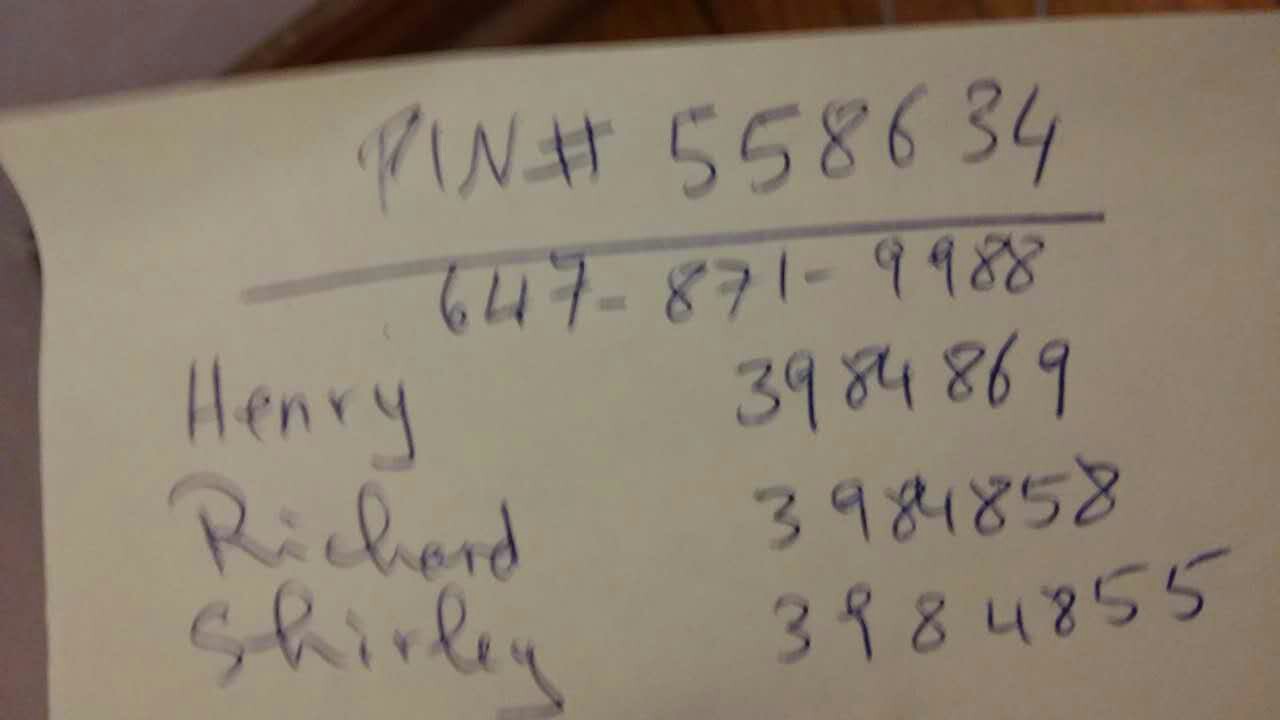 PIN# 558634
647-871-9988
Henry 3984869
Richard 3984858
Shirley 3984855